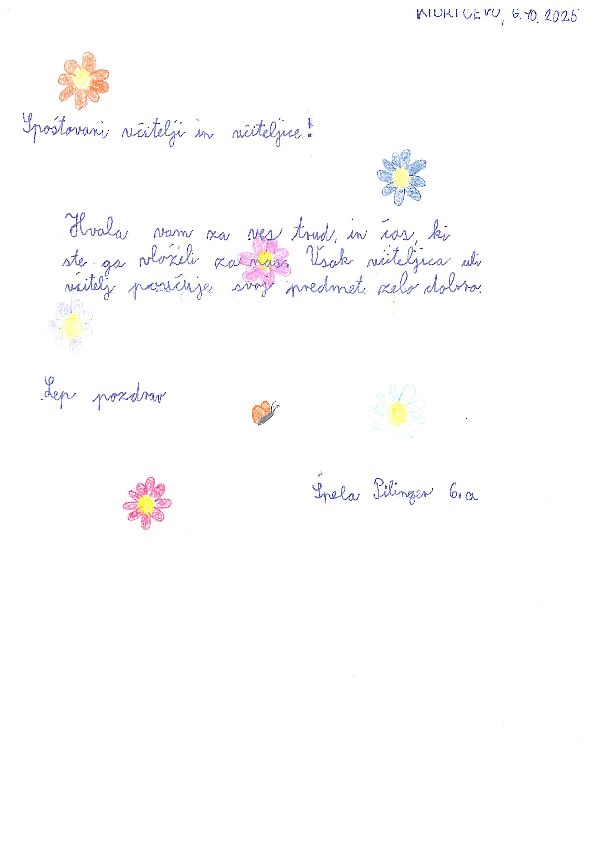 KIDRIČEVO, 6. 10. 2025
Spoštovani učitelji in učiteljice!
Hvala vam za ves trud, in čas, ki
ste ga vložili za nas. Vsak učiteljica ali
učitelj poučuje svoj predmet zelo dobro.
Lep pozdrav
Špela Pilinger 6. a